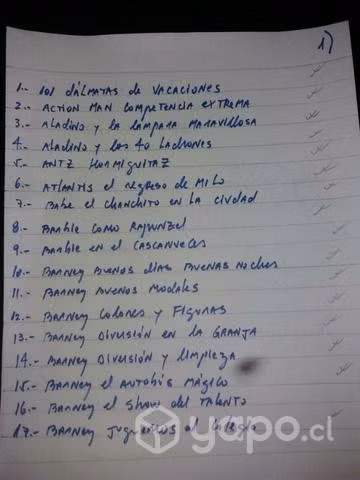 1)
1.- 101 DÁLMATAS de VACACIONES
2.- ACTION MAN COMPETENCIA EXTREMA
3.- ALADINO y la LAMPARA MARAVILLOSA
4.- ALADINO y los 40 LADRONES
5.- ANTZ HORMIGUITAZ
6.- ATLANTIS el regreso de MILO
7.- BABE el CHANCHITO en la CIUDAD
8.- BARBIE COMO RAPUNZEL
9.- BARBIE en el CASCANUECES
10.- BARNEY BUENOS DIAS BUENAS NOCHES
11.- BARNEY BUENOS MODALES
12.- BARNEY COLORES y FIGURAS
13.- BARNEY DIVERSIÓN en la GRANJA
14.- BARNEY DIVERSIÓN y LIMPIEZA
15.- BARNEY el AUTOBÚS MÁGICO
16.- BARNEY el SHOW del TALENTO
17.- BARNEY JUGUETES al COLEGIO
yapo.cl